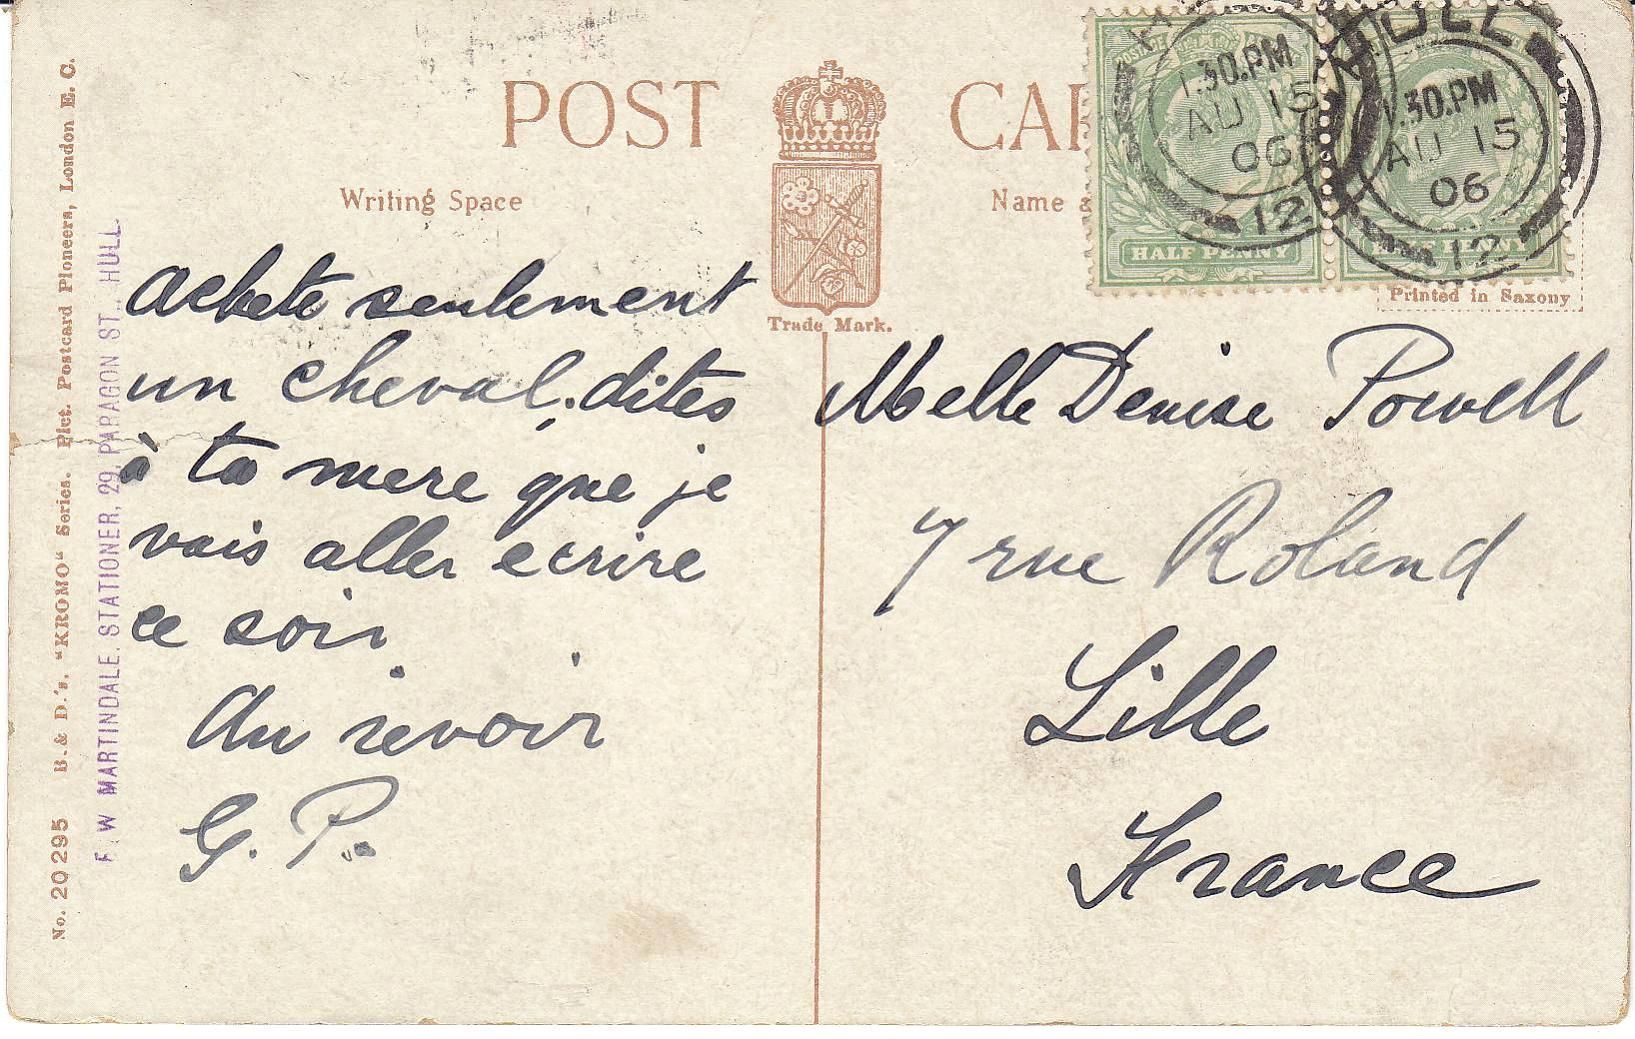 POST
Writing Space
Name &
Trade Mark.
HULL
1.30.PM
AU 15
06
12
1.30.PM
AU 15
06
12
HALF PENNY
HALF PENNY
Printed in Saxony
No. 20295 B. & D.'s. "KROMO" Series. Pict. Postcard Pioneers, London E. C.
F. W MARTINDALE, STATIONER, 29, PARAGON ST., HULL.
Achete seulement
un cheval. dites
à ta mere que je
vais aller ecrire
ce soir.
Au revoir
G. P.
Melle Denise Powell
7 rue Roland
Lille
France